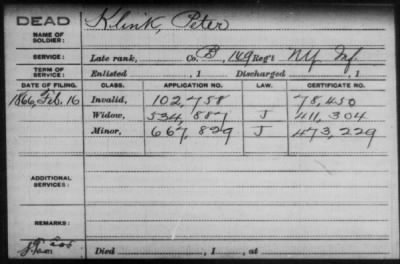 DEAD
NAME OF SOLDIER: Klink, Peter
SERVICE: Late rank, Co. B, 149 Reg't N.Y. Inf.
TERM OF SERVICE: Enlisted , 1 Discharged , 1
DATE OF FILING. CLASS. APPLICATION NO. LAW. CERTIFICATE NO.
1866, Feb. 16 Invalid, 102,758 78,450
Widow, 534,887 J 411,304
Minor, 667,829 J 473,229
ADDITIONAL SERVICES:
REMARKS:
Died , 1 , at